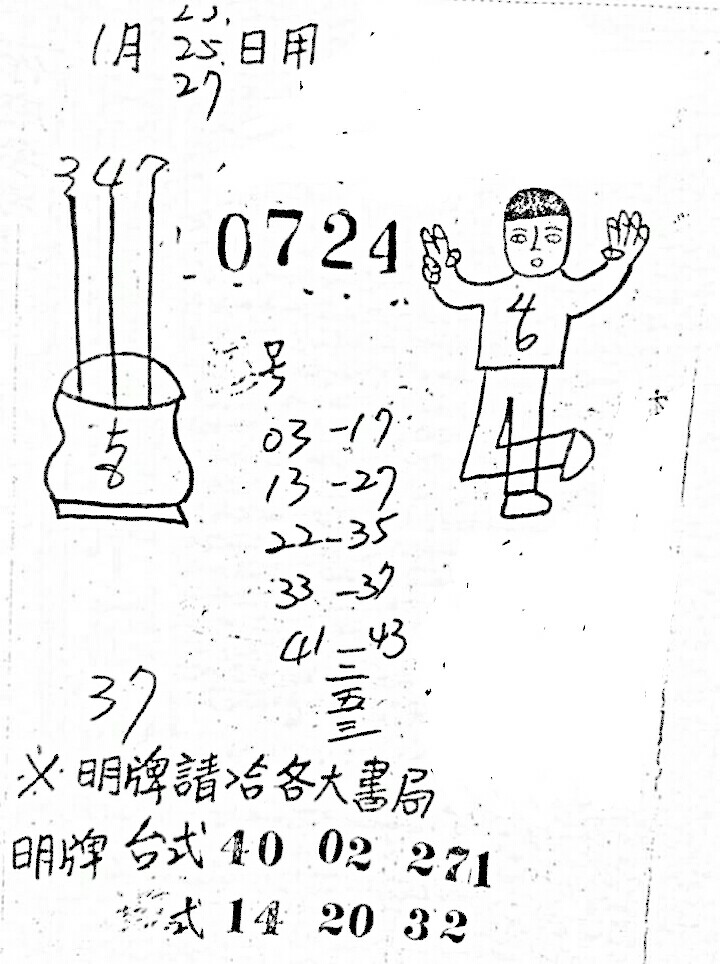 23.
1月 25. 日用
27
3 4 7
0724
4
6
5
8
号
03-17
13-27
22-35
33-37
41-43
三
五
三
37
※明牌請洽各大書局
明牌 台式 40 02 271
式 14 20 32